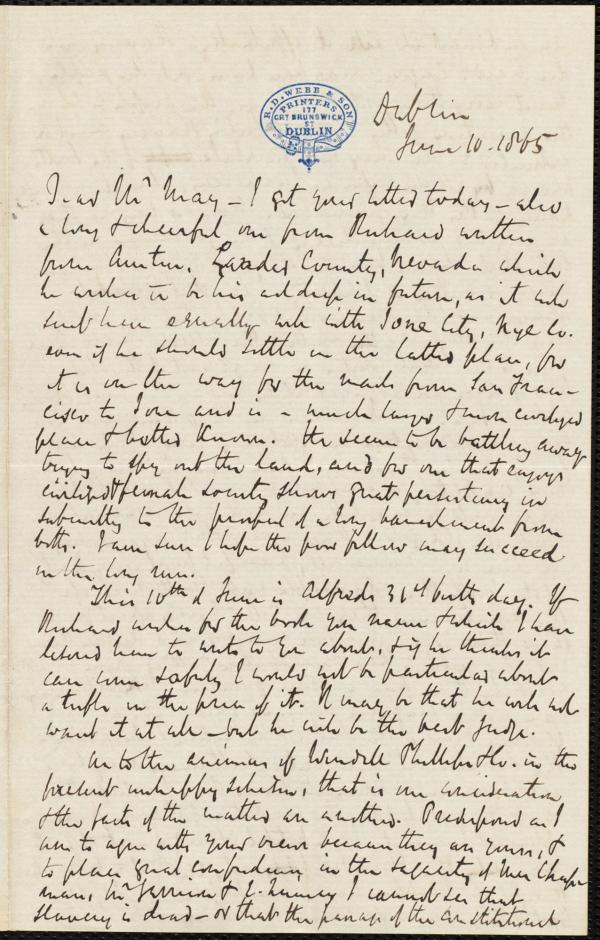 R. D. WEBB & SON
PRINTERS
177
GRT BRUNSWICK
ST
DUBLIN
Dublin
June 10. 1865
Dear Mr May – I got your letter today – also
a long & cheerful one from Richard written
from Austin, Lander County, Nevada which
he wishes to be his address in future, as it will
suit him equally well with Ione City, Nye Co.
even if he should settle in the latter place, for
it is on the way for the mails from San Fran-
cisco to Ione and is a much larger & more civilized
place & better known. He seems to be battling away
trying to spy out the land, and for one that enjoys
civilized & female society shows great persistency in
submitting to the prospect of a long banishment from
both. I am sure I hope the poor fellow may succeed
in the long run.
This 10th of June is Alfred's 31st birth day. If
Richard wishes for the book you name & which I have
desired him to write to you about, & if he thinks it
can come safely I would not be particular about
a trifle in the price of it. It may be that he will not
want it at all – but he will be the best judge.
As to the of Wendell Phillips &c. in the
present unhappy schism, that is one consideration
& the facts of the matter are another. Predisposed as I
am to agree with your views because they are yours, &
to place great confidence in the sagacity of Mrs Chap-
man, Mr Garrison & E. Quincy I cannot see that
slavery is dead – or that the passage of the constitutional